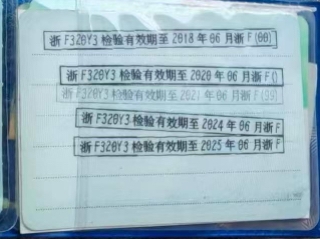 浙F320Y3检验有效期至2018年06月浙F(00)
浙F320Y3检验有效期至2020年06月浙F()
浙F320Y3检验有效期至2021年06月浙F(99)
浙F320Y3检验有效期至2024年06月浙F
浙F320Y3检验有效期至2025年06月浙F